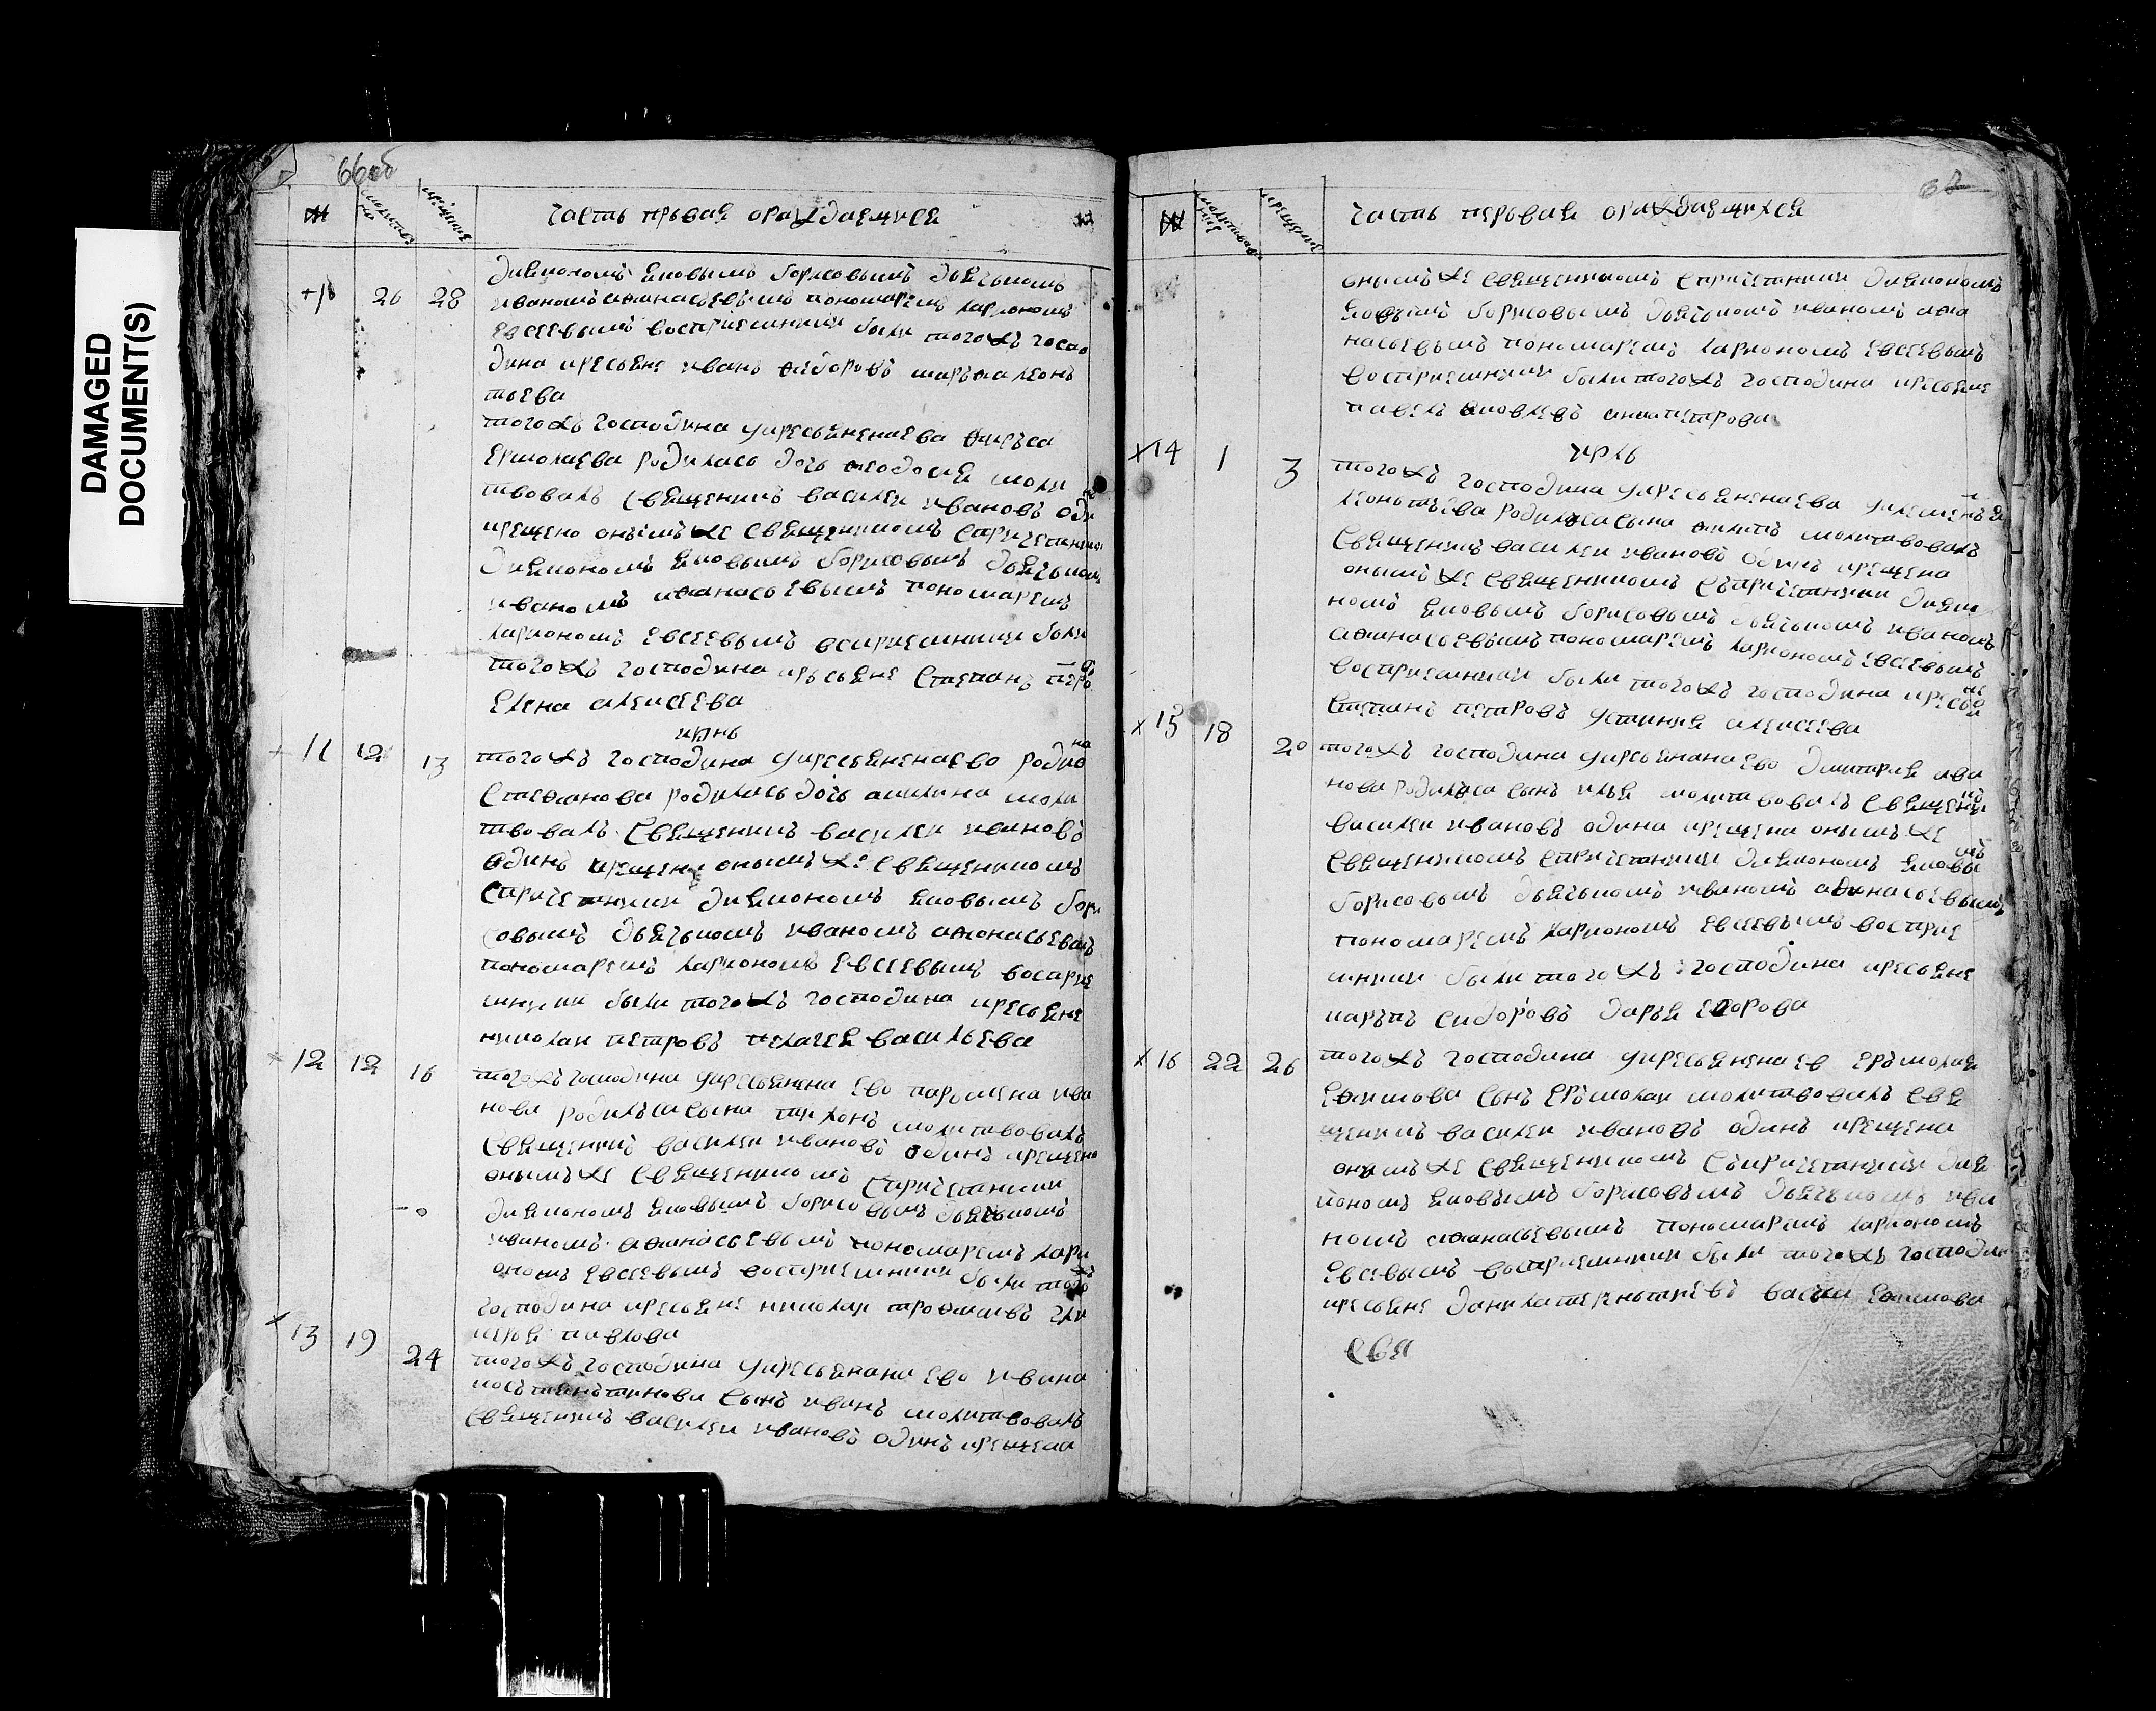 DAMAGED
DOCUMENT(S)
66об
№ молитвы крещение часть первая ораждаемихся
диаконом яковым борисовым дьячьком
10 26 28 иваном афанасьевым пономарем ларионом
евсеевым восприемники были того ж госпо
дина кресьяне иван федоров марфа леонь
тьева
того ж господина у кресьянена ева фирса
ермолаева родилась дочь феодосия моли
твовал священник василеи иванов оди
крещено оным же священником с причетники
диаконом яковым борисовым дьячьком
иваном афанасьевым пономарем
ларионом евсеевым всприемники были
того ж господина кресьяне степан петро
елена алексеева
июнь
11 12 13 того ж господина у кресьянена ево родио на
стафанова родилась дочь акилина моли
твовал священник василеи иванов
один крещен оным же священником
с причетники диаконом яковым бори
совым дьячьком иваном афонасьевым
пономарем ларионом евсеевым восприе
мники были того ж господина кресьяне
николаи петров пелагея васильева
12 12 16 того ж господина у кресьянена ево пармена ива
нова родилься сына молитвовал
священник василеи иванов один крещено
оным же священником с причетники
диаконом яковым борисовым дьячьком
иваном афанасьевым пономарем лари
оном евсеевым восприемники были того ж
господина кресьяне николаи трофимов гли
керья павлова
13 19 24 того ж господина у кресьянана ево ивана
костянтинова сын иван молитвовал
священник василеи иванов один крещена
№ крещение часть первая ораждаемихся
оным же священником с причетники диаконом
яковым борисовым дьячьком иваном афа
насьевым пономарем ларионом евсеевым
восприемники были того ж господина кресьяне
павел яковлев анна петрова
июль
14 1 3 того ж господина у кресьянена ева
леонтьева родилься сына филип молитвовал
священник василеи иванов один крещена
оным же священником с причетники диако
ном яковым борисовым дьячьком иваном
афанасьевым пономарем ларионом евсеевым
восприемники были того ж господина кресья не
степан петров устиния алексеева
15 18 20 того ж господина у кресьянана ево димитрия ива
нова родилься сын илья молитвовал священи нк
василеи иванов одина крещена оным же
священником с причетники диаконом яковы мъ
борисовым дьячьком иваном афонасьевым
пономарем ларионом евсеевым восприе
мники были того ж господина кресьяне
карп сидоров дарья егорова
16 22 26 того ж господина у кресьянена ев ерьмолая
ефимова сын ерьмолаи молитвовал свя
щеник василеи иванов один крещена
оным же священником с причетники диа
коном яковым борисовым дьячьком ива
ном афанасьевым пономарем ларионом
евсевым восприемники были того ж господин
кресьяне данила терентьев ефимова
свя